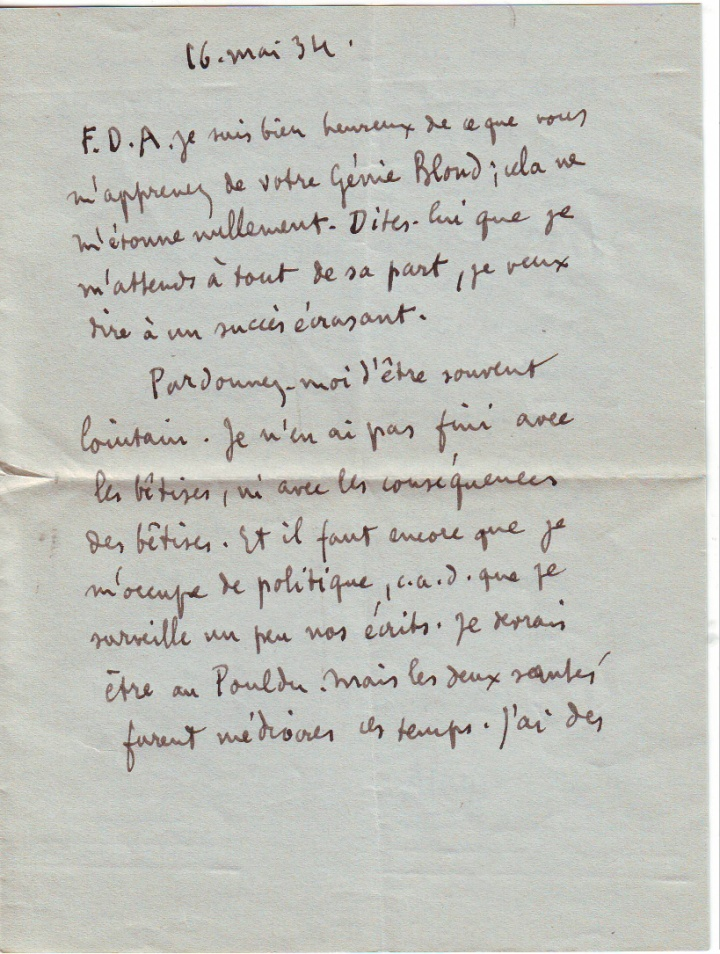 16. mai 34.
F. D. A. je suis bien heureux de ce que vous
m'apprenez de votre Génie Blond ; cela ne
m'étonne nullement. Dites-lui que je
m'attends à tout de sa part, je veux
dire à un succès écrasant.
Pardonnez-moi d'être souvent
lointain. Je n'en ai pas fini avec
les bêtises, ni avec les conséquences
des bêtises. Et il faut encore que je
m'occupe de politique, c.a.d. que je
surveille un peu nos écrits. Je devrais
être au Pouldu. Mais les deux santés
furent médiocres ces temps. J'ai des